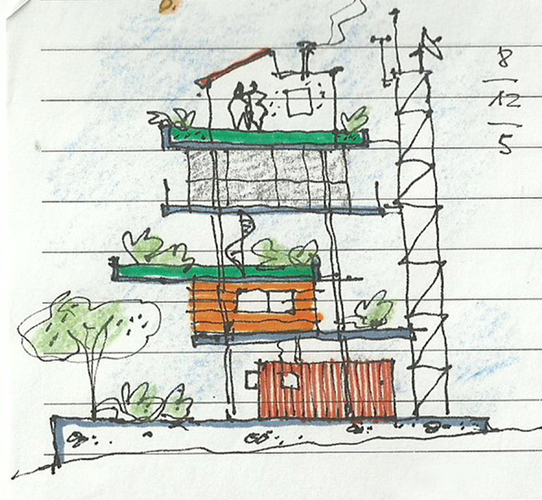 8
12
5